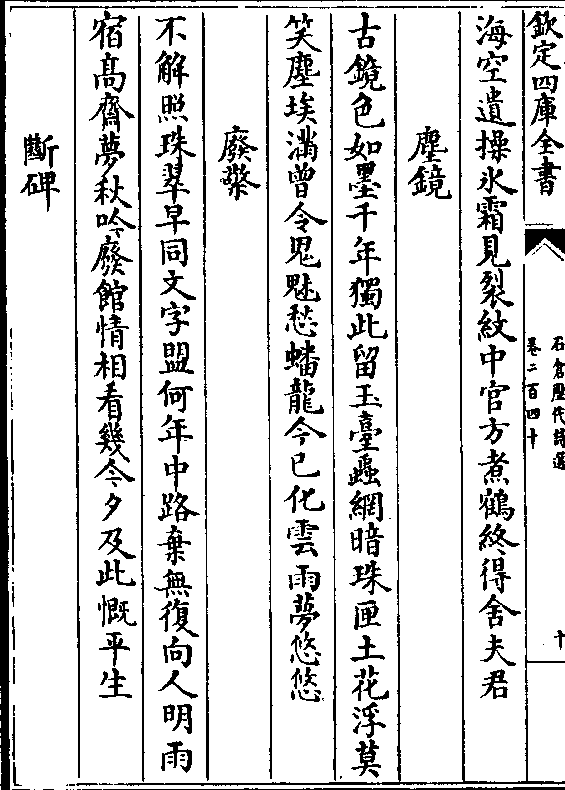 欽定四庫全書
石倉歷代詩選
卷二百四十
十
海空遺操氷霜見裂紋中官方煮鶴終得舍夫君
塵鏡
古鏡色如墨千年獨此留玉臺蟲網暗珠匣土花浮莫
笑塵埃滿曾令鬼魅愁蟠龍今已化雲雨夢悠悠
廢檠
不解照珠翠早同文字盟何年中路棄無復向人明雨
宿髙齋夢秋吟廢館情相看幾今夕及此慨平生
斷碑